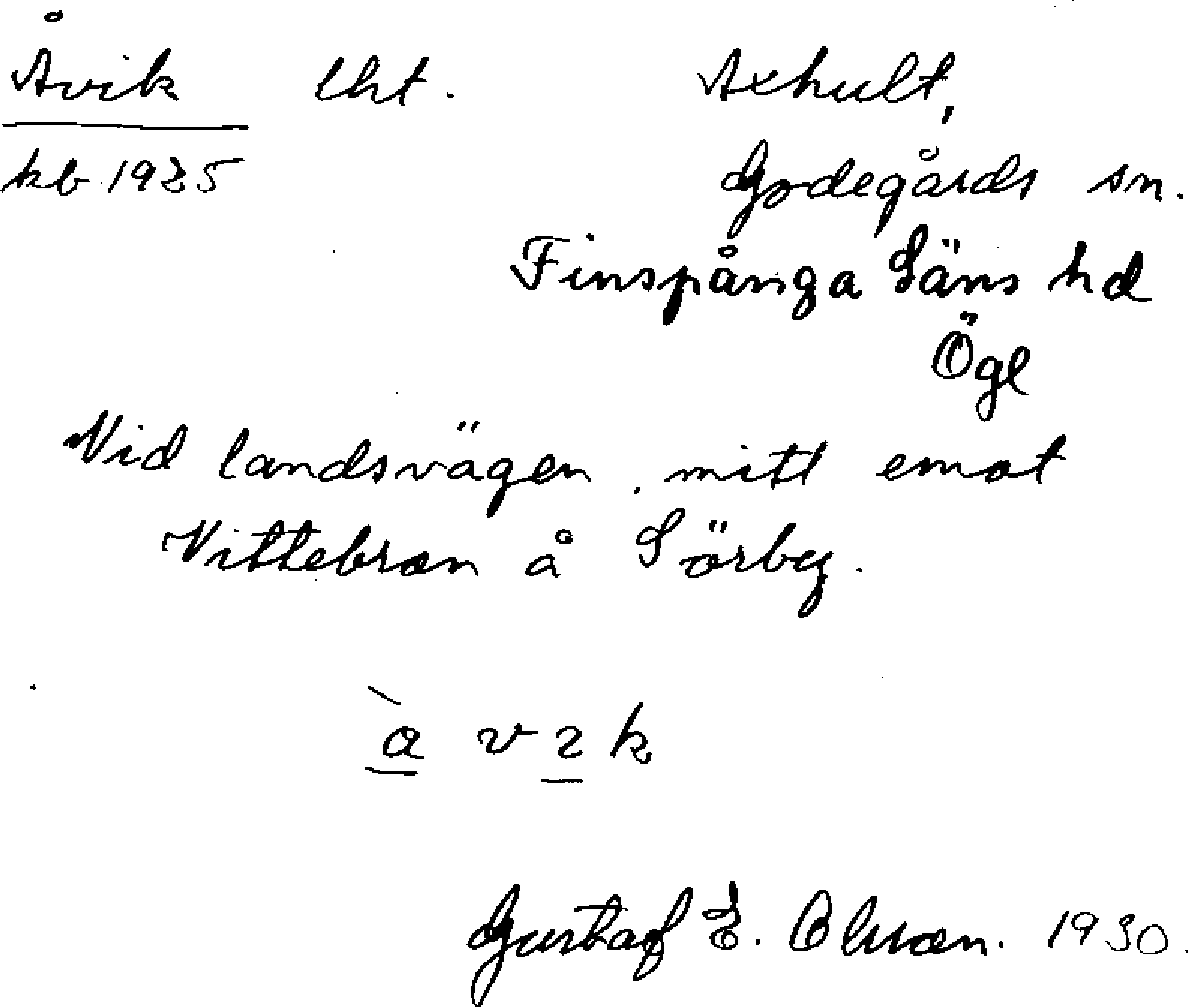 Åvik lht. Axhult,
kb 1925 Godegårds sn.
Finspånga läns hd
Ögl
Vid landsvägen, mitt emot
Vittebron å Sörby.
a v ɩ k
Gustaf E. Olsson. 1930.